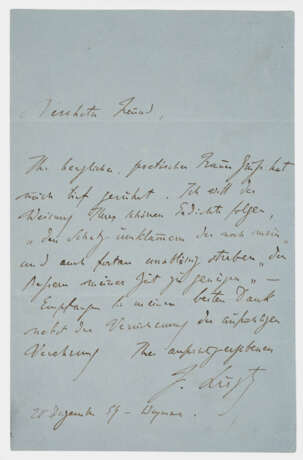 Verehrter Freund,
Ihr herzlicher, poetischer Trauer Gruss hat
mich tief gerührt. Ich will der
Weisung Ihres schönen Gedichts folgen,
„den Schatz umklammern der noch mein“
und auch fortan unablässig streben „den
Besten meiner Zeit zu genügen“ –
Empfangen Sie meinen besten Dank
nebst der Versicherung der aufrichtigen
Verehrung Ihres
F. Liszt
28 Dezember 59 – Weymar.